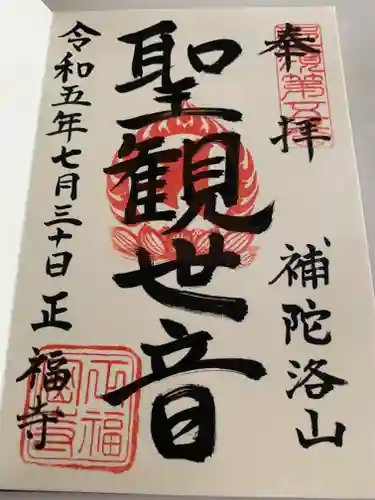 奉拝
補陀洛山
聖観世音
令和五年七月三十日
正福寺
正福寺